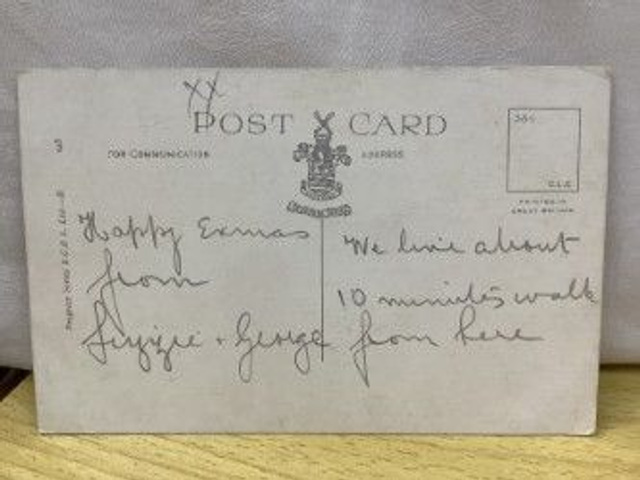 XX
POST CARD
FOR COMMUNICATION
ADDRESS
3
384
D.L.G
PRINTED IN
GREAT BRITAIN
Happy Exmas
from
Lizzie + George
We live about
10 minutes walk
from here